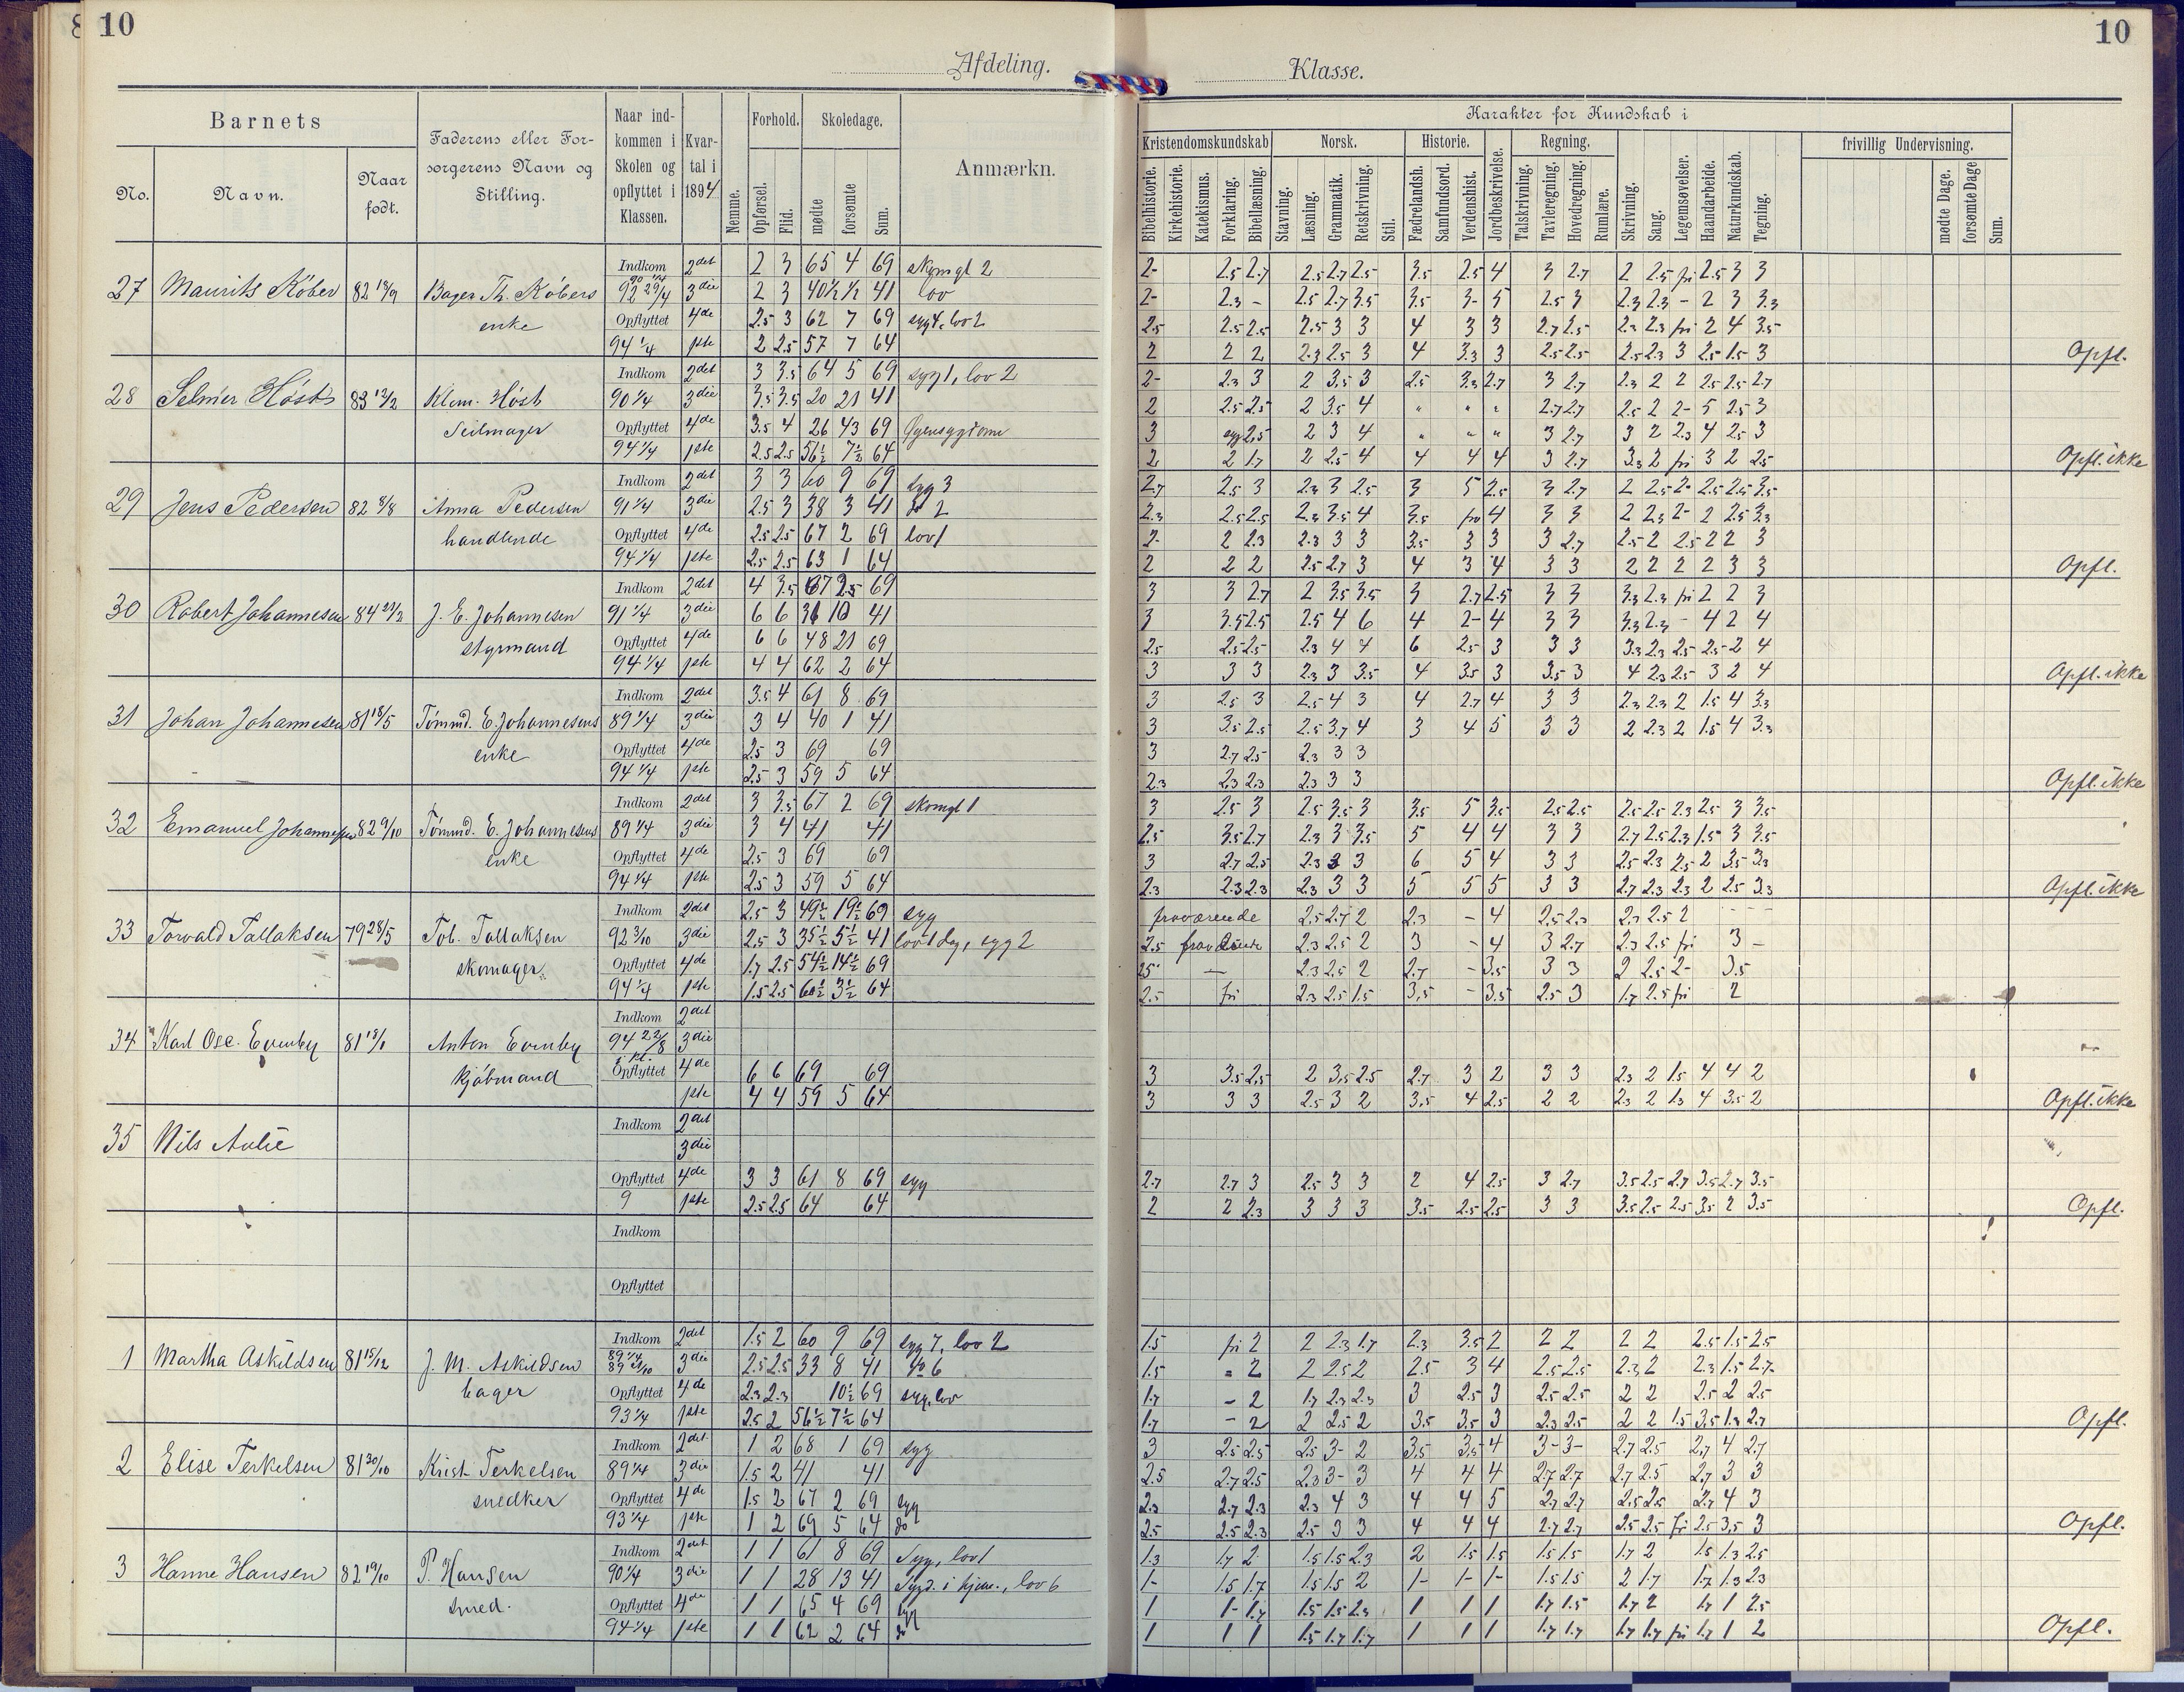 8 10
Afdeling.
Barnets
No. Navn. Naar født.
Faderens eller Forsørgerens Navn og Stilling.
Naar indkommen i Skolen og opflyttet i Klassen.
Kvartal i 1894
Nemme.
Forhold. Opførsel. Flid.
Skoledage. mødte forsømte Sum.
Anmærkn.
27 Maurits Køber 82 18/9 Bager Th. Købers enke
Indkom 2det 2 3 65 4 69 skomgl 2
3die 2 3 40½ ½ 41 lov
Opflyttet 4de 2.5 3 62 7 69 syg 4, lov 2
94 1/4 1ste 2 2.5 57 7 64
28 Selmer Høst 83 13/2 Klem. Høst Seilmager
Indkom 2det 3 3.5 64 5 69 syg 1, lov 2
90 1/4 3die 3.5 3.5 20 21 41
Opflyttet 4de 3.5 4 26 43 69 Øyensygdom
94 1/4 1ste 2.5 2.5 56½ 7½ 64
29 Jens Pedersen 82 8/8 Anna Pedersen handlende
Indkom 2det 3 3 60 9 69 syg 3
91 1/4 3die 2.5 3 38 3 41 do 2
Opflyttet 4de 2.5 2.5 67 2 69 lov 1
94 1/4 1ste 2.5 2.5 63 1 64
30 Robert Johannesen J. E. Johannesen styrmand
Indkom 2det 4 3.5 67 2.5 69
91 1/4 3die 6 6 31 10 41
Opflyttet 4de 6 6 48 21 69
94 1/4 1ste 4 4 62 2 64
31 Johan Johannesen 81 18/5 Tømmd. E. Johannesens enke
Indkom 2det 3.5 4 61 8 69
89 1/4 3die 3 4 40 1 41
Opflyttet 4de 2.5 3 69 69
94 1/4 1ste 2.5 3 59 5 64
32 Emanuel Johannesen 82 9/10 Tømmd. E. Johannesens enke
Indkom 2det 3 3.5 67 2 69 skomgl 1
89 1/4 3die 3 4 41 41
Opflyttet 4de 2.5 3 69 69
94 1/4 1ste 2.5 3 59 5 64
33 Torvald Tallaksen 79 28/5 Tob. Tallaksen skomager
Indkom 2det 2.5 3 49½ 19½ 69 syg
92 3/10 3die 2.5 3 35½ 5½ 41 lov 1 dag, syg 2
Opflyttet 4de 1.7 2.5 54½ 14½ 69
94 1/4 1ste 1.5 2.5 60½ 3½ 64
34 Karl Osc. Evenby 81 18/1 Anton Evenby kjøbmand
Indkom 2det
94 22/8 3die
Opflyttet 4de 6 6 69 69
1ste 4 4 59 5 64
35 Nils Aulie
Indkom 2det
3die
Opflyttet 4de 3 3 61 8 69 syg
9 1ste 2.5 2.5 64 64
Indkom
Opflyttet
1 Martha Askildsen 81 15/12 J. M. Askildsen bager
Indkom 2det 1.5 2 60 9 69 syg 7, lov 2
89 1/4 3die 2.5 2.5 33 8 41 do 6
Opflyttet 4de 2.3 2.3 10½ 69 syg, lov
93 1/4 1ste 2.5 2 56½ 7½ 64
2 Elise Terkelsen 81 30/10 Krist. Terkelsen snedker
Indkom 2det 1 2 68 1 69 syg
89 1/4 3die 1.5 2 41 41
Opflyttet 4de 1.5 2 67 2 69 syg
93 1/4 1ste 1 2 69 5 64 do
3 Hanne Hansen 82 19/10 P. Hansen smed.
Indkom 2det 1 1 61 8 69 Syg, lov 1
90 1/4 3die 1 1 28 13 41 Sygd. i hjem., lov 6
Opflyttet 4de 1 1 65 4 69 syg
94 1/4 1ste 1 1 62 2 64 do
Klasse. 10
Karakter for Kundskab i
Kristendomskundskab Bibelhistorie. Kirkehistorie. Katekismus. Forklaring. Bibellæsning.
Norsk. Stavning. Læsning. Grammatik. Retskrivning. Stil.
Historie. Fædrelandsh. Samfundsord. Verdenshist.
Jordbeskrivelse.
Regning. Talskrivning. Tavleregning. Hovedregning. Rumlære.
Skrivning. Sang. Legemsøvelser. Haandarbeide. Naturkundskab. Tegning.
frivillig Undervisning. mødte Dage. forsømte Dage Sum.
2- 2.5 2.7 2.5 2.7 2.5 3.5 2.5 4 3 2.7 2 2.5 fri 2.5 3 3
2- 2.3 - 2.5 2.7 3.5 3.5 3- 5 2.5 3 2.3 2.3 - 2 3 3.3
2.5 2.5 2.5 2.5 3 3 4 3 3 2.7 2.5 2.3 2.3 fri 2 4 3.5
2 2 2 2.3 2.5 3 4 3.3 3 2.5 2.5 2.5 2.3 3 2.5 1.5 3 Opfl.
2- 2.3 3 2 3.5 3 2.5 3.3 2.7 3 2.7 2.3 2 2 2.5 2.5 2.7
2 2.5 2.5 2 3.5 4 " " " 2.7 2.7 2.5 2 2- 5 2.5 3
3 syg 2.5 2 3 4 " " " 3 2.7 3 2 2.3 4 2.5 3
2 2 1.7 2 2.5 4 4 4 4 3 2.7 3.3 2 fri 3 2 2.5 Opfl. ikke
2.7 2.5 3 2.3 3 2.5 3 5 2.5 3 2.7 2 2.5 2- 2.5 2.5 3.5
2.3 2.5 2.5 2.3 3.5 4 3.5 fra 4 3 3 2 2.3 2- 2 2.5 3.3
2- 2 2.3 2.3 3 3 3.5 3 3 3 2.7 2.5 2 2.5 2 2 3
2 2 2 2.5 2.7 3 4 3 4 3 3 2 2 2 2 3 3 Opfl.
3 3 2.7 2 3.5 3.5 3 2.7 2.5 3 3 3.3 2.3 fri 2 2 3
3 3.5 2.5 2.5 4 6 4 2- 4 3 3 3.3 2.3 - 4 2 4
2.5 2.5 2.5 2.3 4 4 6 2.5 3 3 3 3.3 2.3 2.5 2.5 2 4
3 3 3 2.3 3 3.5 4 3.5 3 3.5 3 4 2.3 2.5 3 2 4 Opfl. ikke
3 2.5 3 2.5 4 3 4 2.7 4 3 3 2.3 2.3 2 1.5 4 3.3
3 3.5 2.5 2.5 3.7 4 3 4 5 3 3 2 2.3 2 1.5 4 3.3
3 2.7 2.5 2.3 3 3
2.3 2.3 2.3 2.3 3 3 Opfl. ikke
3 2.5 3 2.5 3.5 3 3.5 5 3.5 2.5 2.5 2.5 2.5 2.3 2.5 3 3.5
2.5 3.5 2.7 2.3 3 3.5 5 4 4 3 3 2.7 2.5 2.3 1.5 3 3.5
3 2.7 2.5 2.3 3 3 6 5 4 3 3 2.5 2.3 2.5 2 3.5 3.3
2.3 2.3 2.3 2.3 3 3 5 5 5 3 3 2.7 2.3 2.3 2 2.5 3.3 Opfl. ikke
fraværende 2.5 2.7 2 2.3 - 4 2.5 2.3 2.3 2.5 2 - - -
2.5 fraværende 2.3 2.5 2 3 - 4 3 2.7 2.3 2.5 fri 3 -
2.5 — 2.3 2.5 2 2.7 - 3.5 3 3 2 2.5 2- 3.5
2.5 fri 2.3 2.5 1.5 3.5 - 3.5 2.5 3 1.7 2.5 fri 2
3 3.5 2.5 2 3.5 2.5 2.7 3 2 3 3 2.3 2 1.5 4 4 2
3 3 3 2.5 3 2 3.5 4 2.5 2 2 2.3 2 1.3 4 3.5 2 Opfl. ikke
2.7 2.7 3 2.5 3 3 2 4 2.5 3 2.7 3.5 2.5 2.7 3.5 2.7 3.5
2 2 2.3 3 3 3 3.5 2.5 2.5 3 3 3.5 2.5 2.5 3.5 2 3.5 Opfl.
1.5 fri 2 2 2.3 1.7 2.3 3.5 2 2 2 2 2 2.5 1.5 2.5
1.5 " 2 2 2.5 2 2.5 3 4 2.5 2.5 2.3 2 2.3 1.5 2.7
1.7 - 2 1.7 2.3 2.3 3 2.5 3 2.5 2.5 2 2 2.5 2 2.5
1.7 - 2 2 2.5 2 3.5 3.5 3 2.3 2.5 2 2 1.5 3.5 1.3 2.7 Opfl.
3 2.5 2.5 2.5 3- 2 3.5 3.5 4 3- 3- 2.7 2.5 2.7 4 2.7
2.5 2.7 2.5 2.3 3- 3 4 4 4 2.7 2.7 2.7 2.5 2.7 3 3
2.3 2.7 2.3 2.3 4 3 4 4 5 2.7 2.7 2.5 2.5 2.7 4 3
2.5 2.5 2.3 2.5 3 3 4 4 4 2.7 2.7 2.5 2.5 fri 2.5 3.5 3 Opfl.
1.3 1.7 2 1.5 1.5 2.3 2 1.5 1.5 1.5 1.5 1.7 2 1.5 1.3 2.5
1- 1.5 1.7 1.5 1.5 2 1- 1- 1- 1.5 1.5 2 1.7 1.7 1.3 2.3
1 1- 1.7 1.5 1.5 2.3 1 1 1 1.7 1.5 1.7 2 1.7 1 2.5
1 1 1 1.5 1.7 1.7 1 1 1 1.7 1.7 1.7 1.7 fri 1.7 1 2 Opfl.